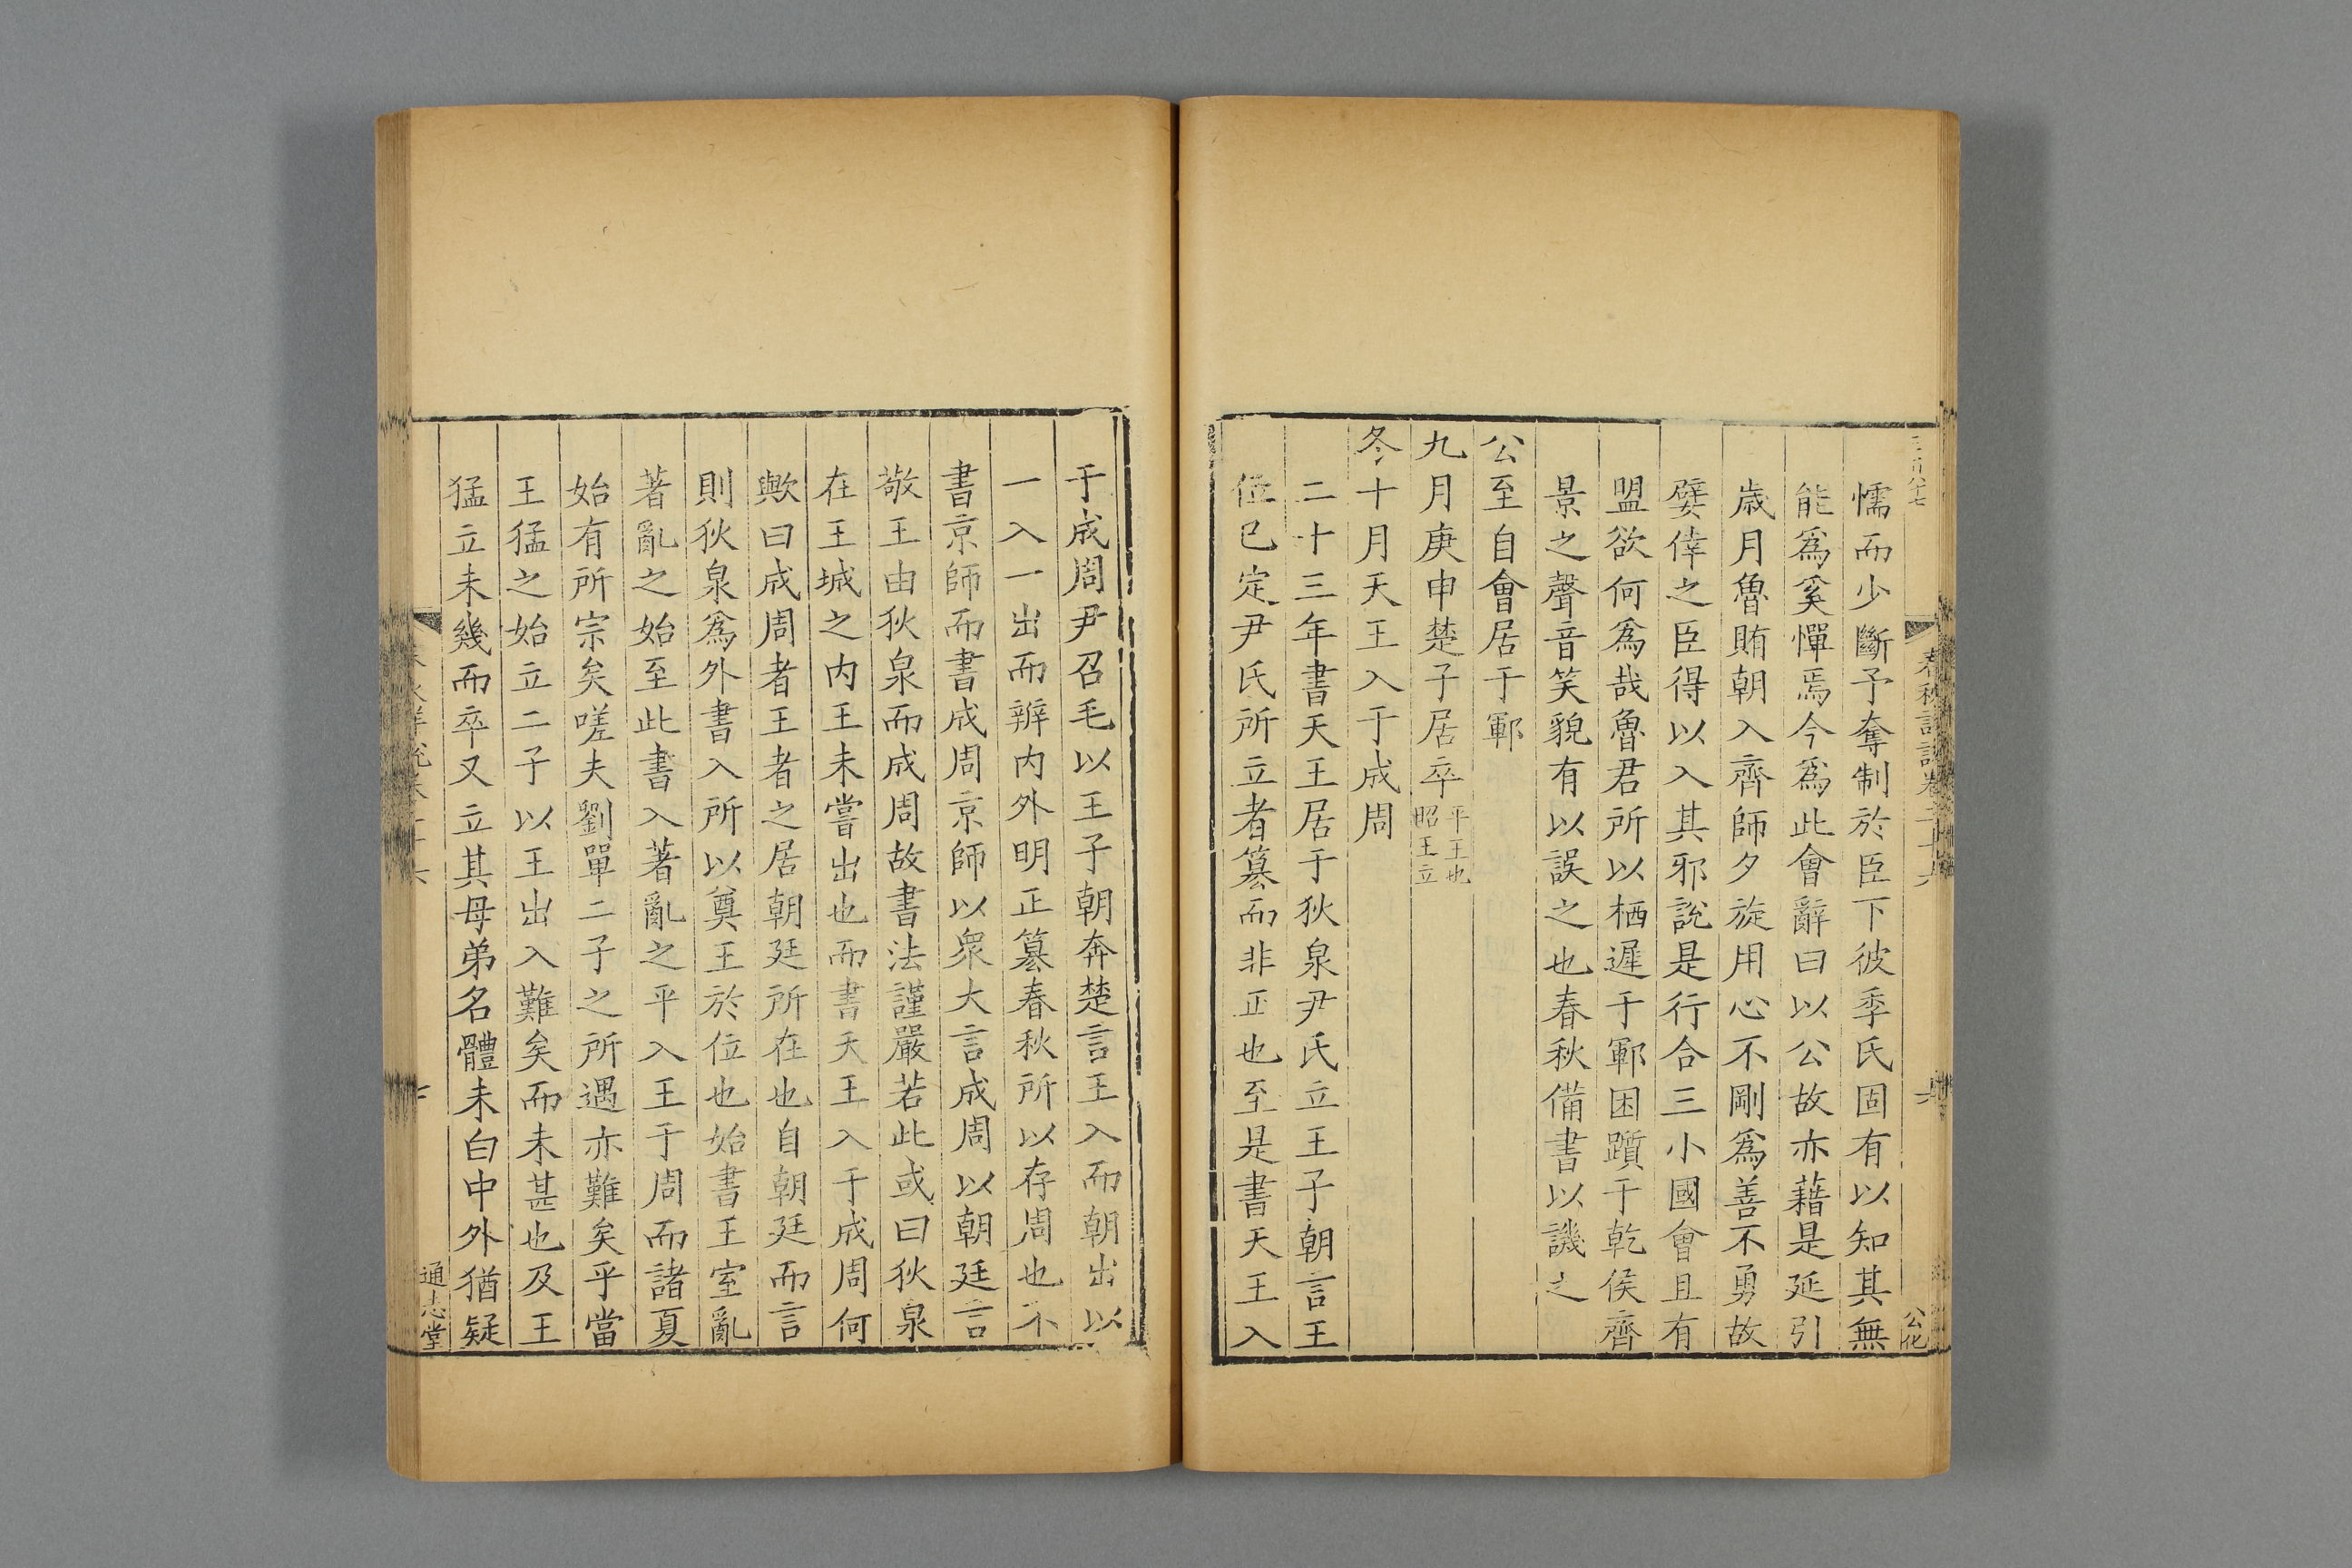 懦而少斷予奪制於臣下彼季氏固有以知其無
能爲奚憚焉今爲此會辭曰以公故亦藉是延引
歲月魯賄朝入齊師夕旋用心不剛爲善不勇故
嬖倖之臣得以入其邪說是行合三小國會且有
盟欲何爲哉魯君所以栖遲于鄆困躓于乾侯齊
景之聲音笑貌有以誤之也春秋備書以譏之
公至自會居于鄆
九月庚申楚子居卒平王也昭王立
冬十月天王入于成周
二十三年書天王居于狄泉尹氏立王子朝言王
位已定尹氏所立者篡而非正也至是書天王入
于成周尹召毛以王子朝奔楚言王入而朝出以
一入一出而辨内外明正篡春秋所以存周也不
書京師而書成周京師以衆大言成周以朝廷言
敬王由狄泉而成周故書法謹嚴若此或曰狄泉
在王城之内王未嘗出也而書天王入于成周何
歟曰成周者王者之居朝廷所在也自朝廷而言
則狄泉爲外書入所以奠王於位也始書王室亂
著亂之始至此書入著亂之平入王于周而諸夏
始有所宗矣嗟夫劉單二子之所遇亦難矣乎當
王猛之始立二子以王出入難矣而未甚也及王
猛立未幾而卒又立其母弟名體未白中外猶疑
通志堂